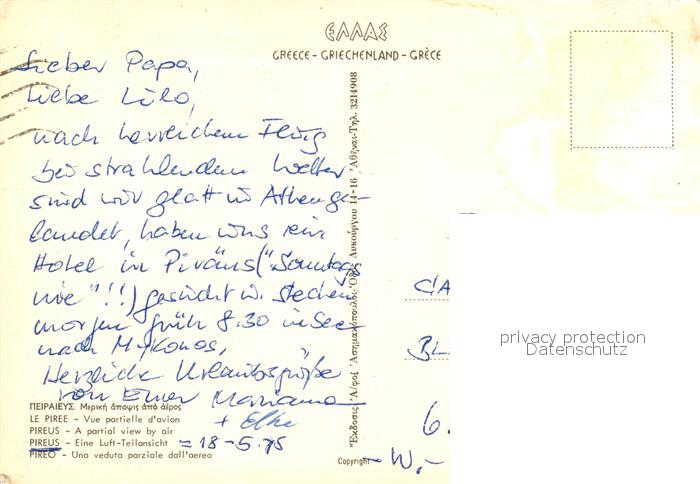 ΕΛΛΑΣ
GREECE - GRIECHENLAND - GRÈCE
Lieber Papa,
liebe Lilo,
nach herrlichem Flug
bei strahlendem Wetter
sind wir glatt in Athen ge-
landet, haben uns ein
Hotel in Piräus ("Sonntags
nie"!!) gesucht u. stechen
morgen früh 8.30 in See
nach Mykonos,
Herzliche Urlaubsgrüße
von Eurer Marianne
+ Elke
= 18-5.75
ΠΕΙΡΑΙΕΥΣ. Μερική ἄποψις ἀπό ἀέρος
LE PIREE - Vue partielle d'avion
PIREUS - A partial view by air
PIREUS - Eine Luft-Teilansicht
PIREO - Una veduta parziale dall'aereo
Ἔκδοσις Ἀ/φοί Ἀσημακόπουλοι-Ὁδὸς Λυκούργου 14-16 Ἀθῆναι-Τηλ. 3214908
Copyright
CA
BL
6.
W.-
privacy protection
Datenschutz